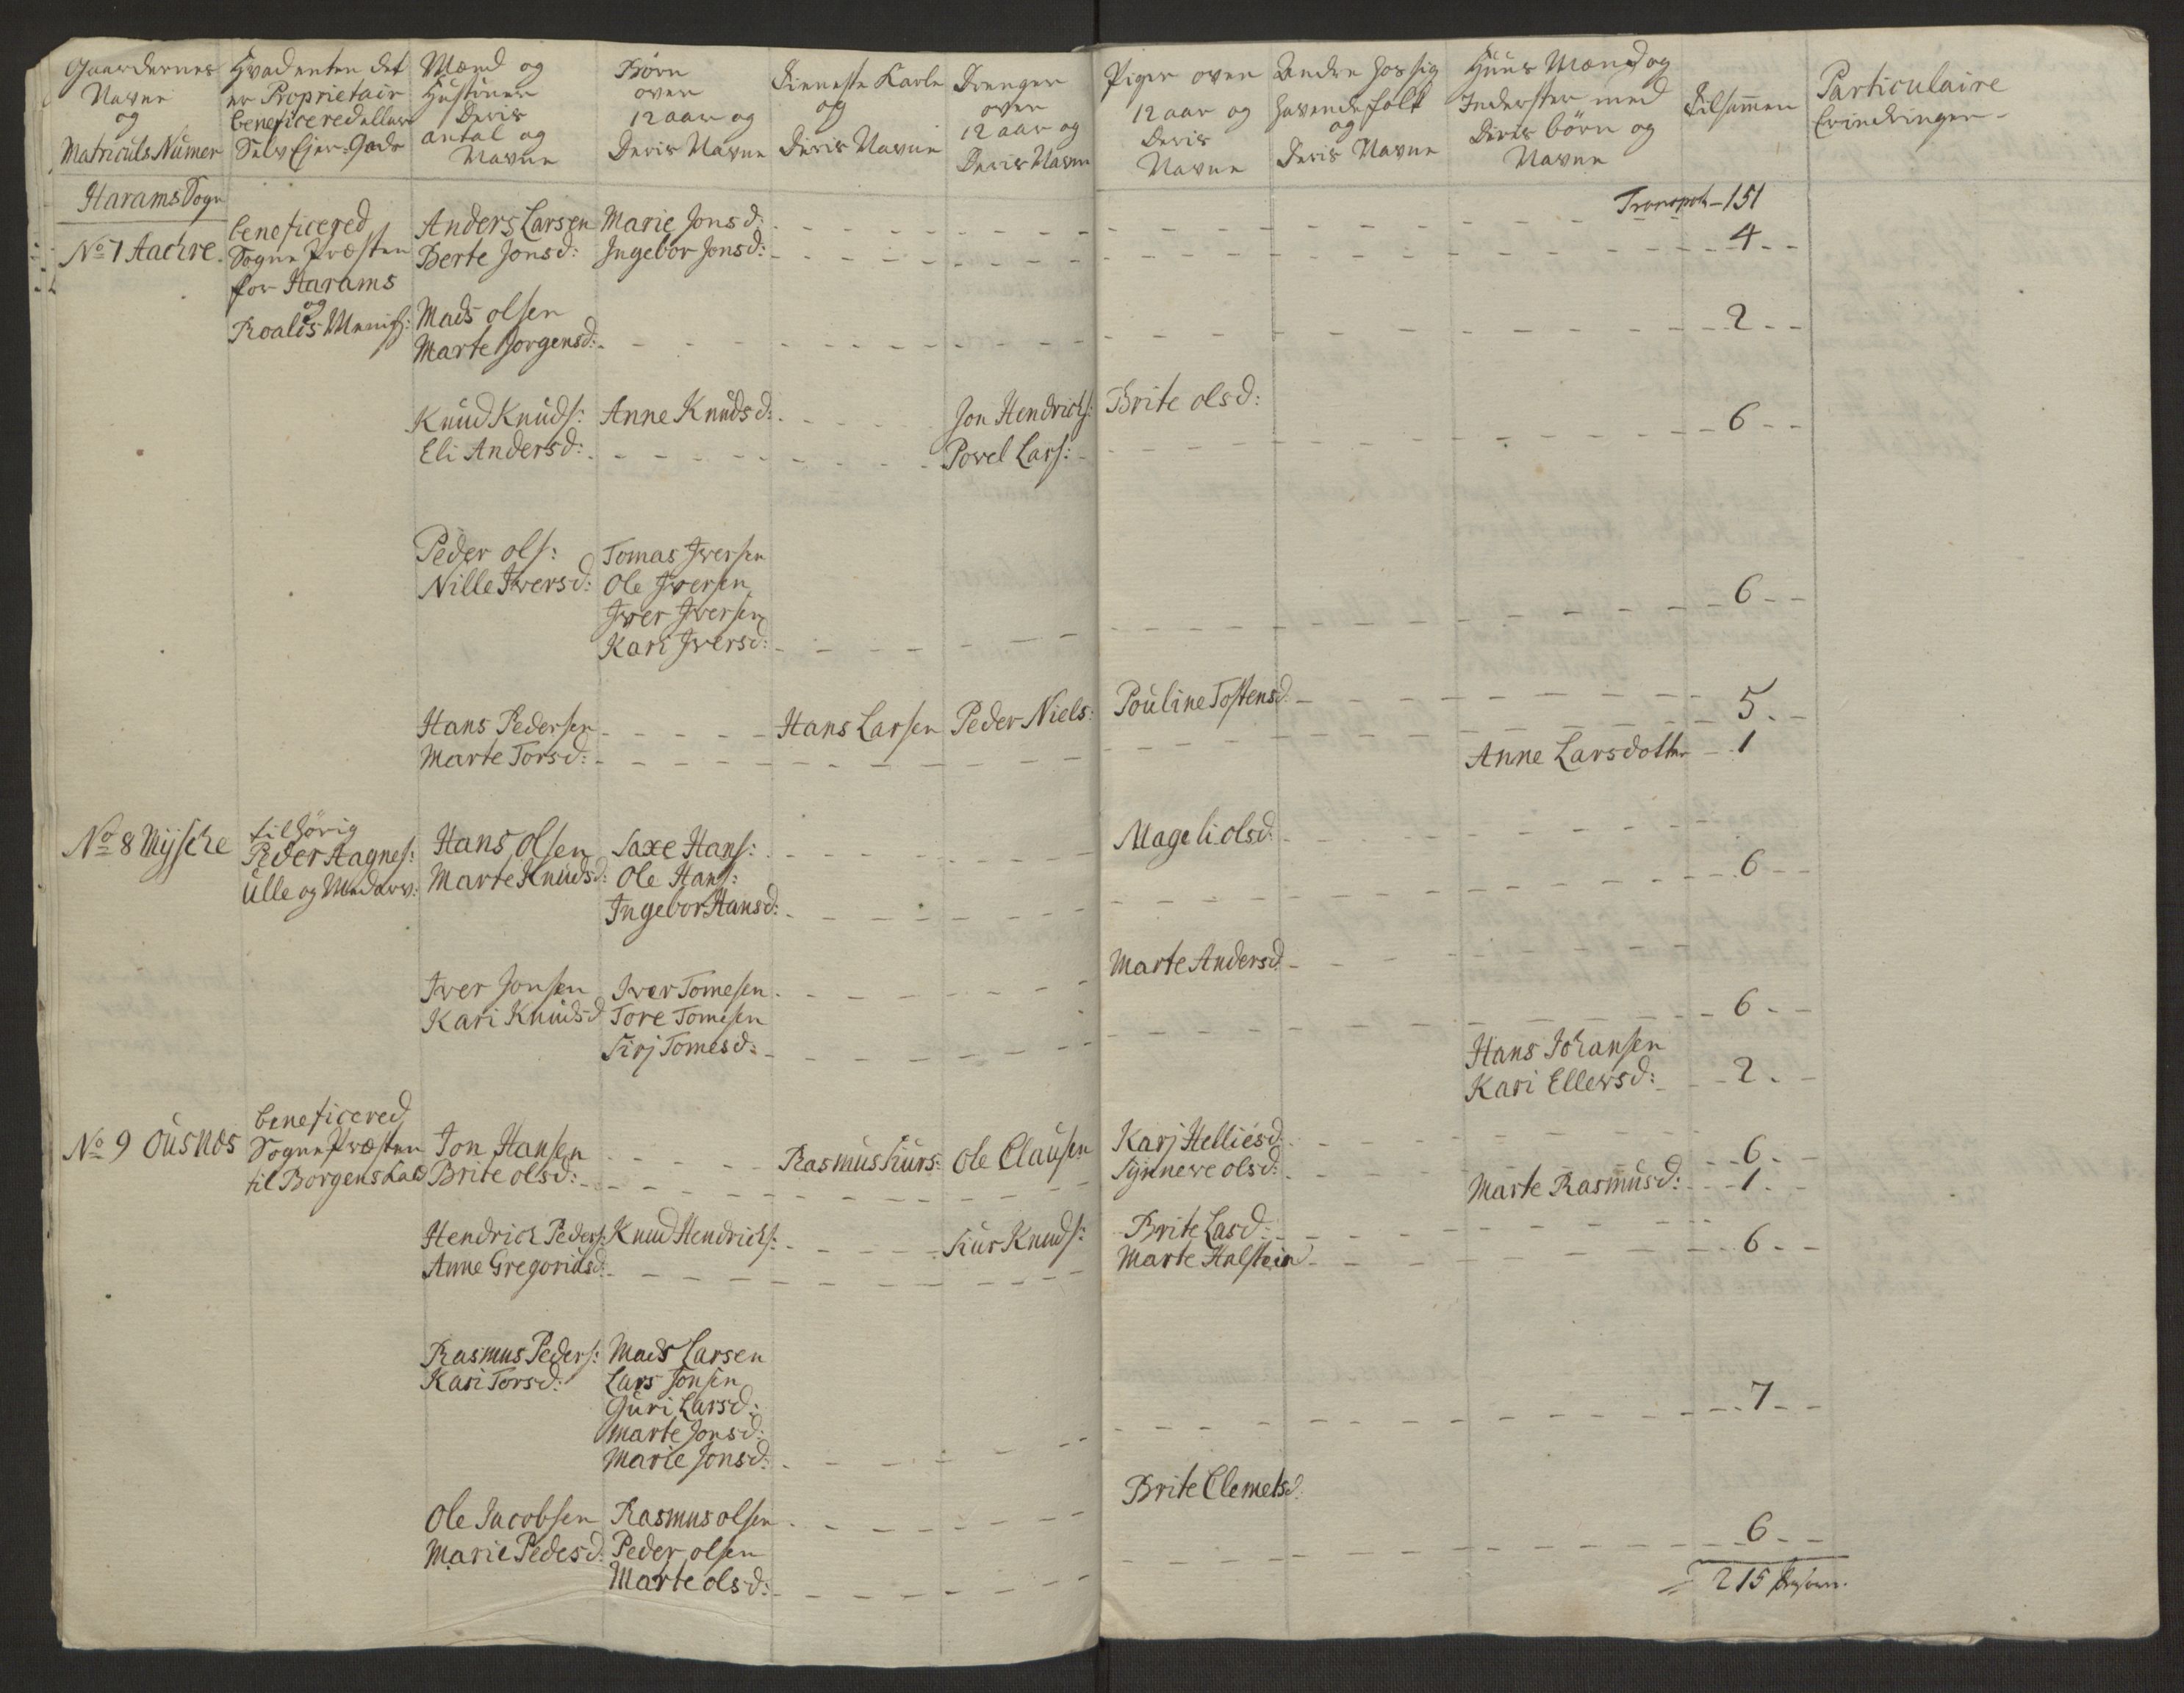 Gaardernes Navne og Matriculs Numer
Hvad enten det er Proprietair beneficered eller Selv Ejer-Gods
Mænd og Hustruer Deris antal og Navne
Børn over 12 aar og Deris Navne
Tieneste Karle og Deris Navne
Drenger over 12 aar og Deris Navne
Piger over 12 aar og Deris Navne
Andre hos sig havende folk og Deris Navne
Huus Mænd og Inderster med Deris børn og Navne
Tilsammen
Particulaire Erindringer
Harams Sogn
Transpot - 151
No 7 Aachre
beneficered Sogne Præsten for Harams og Roalds Menigh:
Anders Larsen Marie Jonsd:
Berte Jonsd: Ingebor Jonsd: 4
Mads olsen
Marte Jorgensd: 2
Knud Knuds: Anne Knudsd: Jon Hendrichs: Brite olsd:
Eli Andersd: Povel Lars: 6
Peder ols: Tomas Iversen
Nille Iversd: Ole Iversen
Iver Iversen
Kari Iversd: 6
Hans Pedersen Hans Larsen Peder Niels: Pouline Tostensd 5
Marte Torsd: Anne Larsdotter 1
No 8 Mijsche
tilhørig Peder Aagnes: Ulle og Medarv:
Hans Olsen Saxe Hans: Mageli olsd:
Marte Knudsd: Ole Hans: 6
Ingebor Hansd:
Iver Jonsen Iver Tomesen Marte Andersd
Kari Knudsd Tore Tomesen 6
Sirj Tomesd:
Hans Johansen
Kari Ellersd: 2
No 9 Ousnes
beneficered Sogne Præsten til Borgens Kald
Jon Hansen Rasmus Siurs: Ole Clausen Karj Helliesd:
Brite olsd: Synneve olsd: 6
Marte Rasmusd: 1
Hendrich Peders: Knud Hendrichs: Siur Knuds: Brite Lasd: 6
Anne Gregoriusd: Marte Halsteind
Rasmus Peders: Mads Larsen
Kari Torsd: Lars Jonsen
Guri Larsd: 7
Marte Jonsd:
Marie Jonsd:
Ole Jacobsen Rasmus olsen Brite Clemetsd.
Marie Pedesd: Peder olsen 6
Marte olsd:
215 Personer.